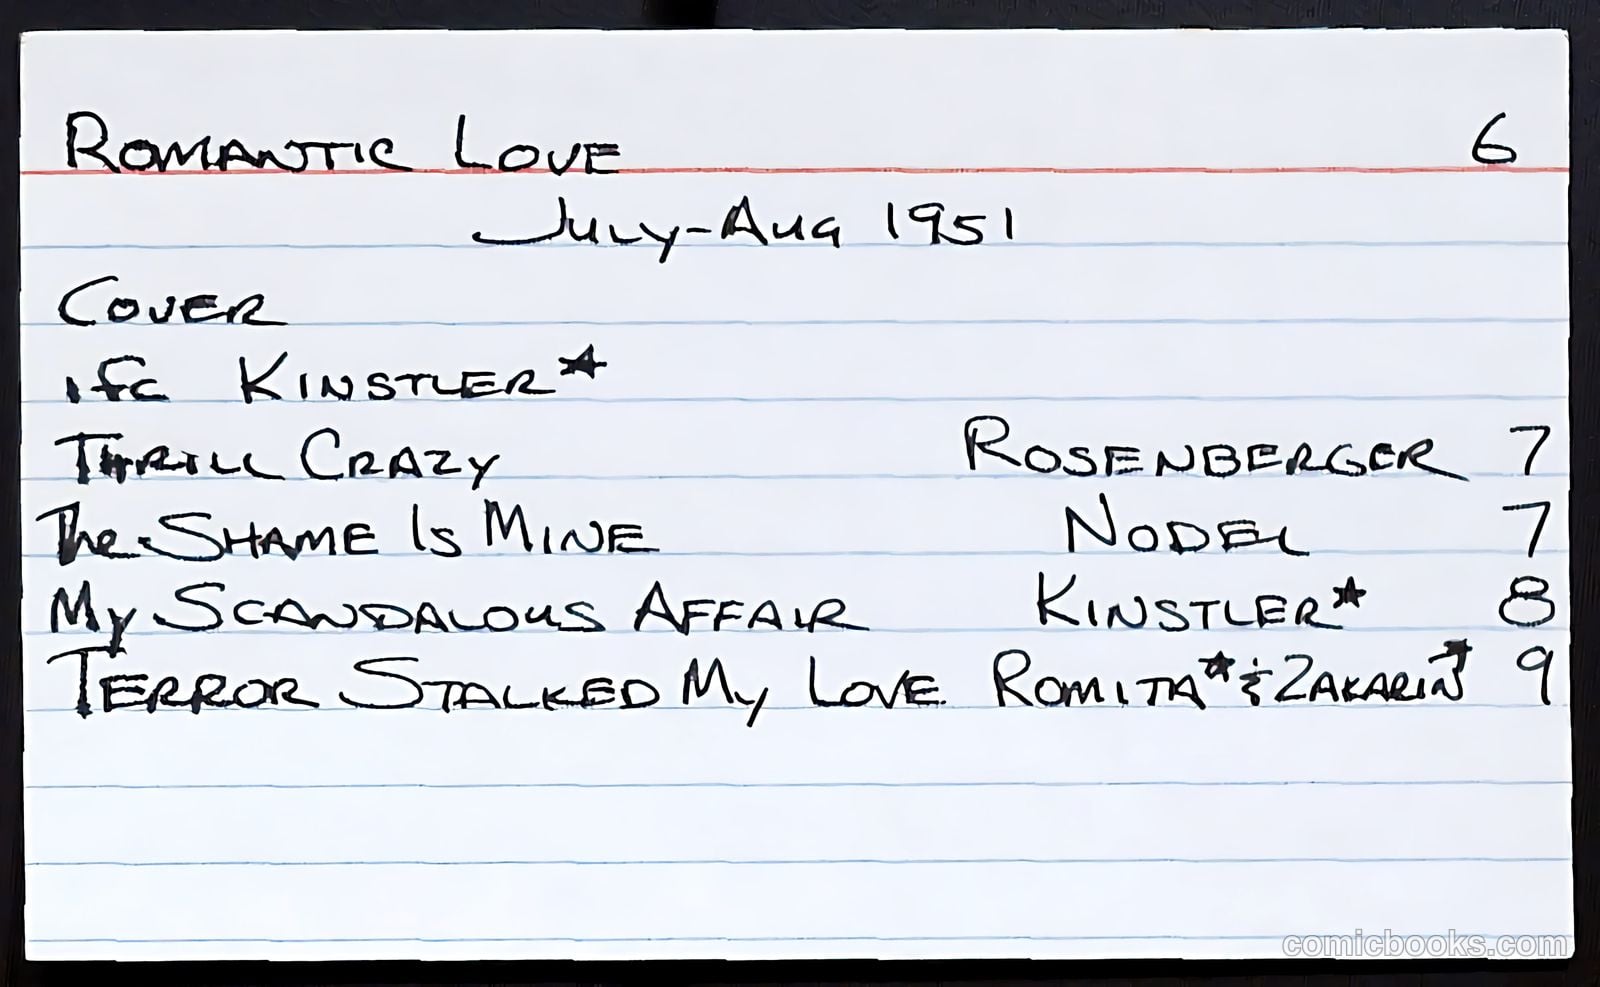 ROMANTIC LOVE 6
JULY-AUG 1951
COVER
ifc KINSTLER*
THRILL CRAZY ROSENBERGER 7
The SHAME IS MINE NODEL 7
MY SCANDALOUS AFFAIR KINSTLER* 8
TERROR STALKED MY LOVE ROMITA* & ZAKARIN* 9
comicbooks.com